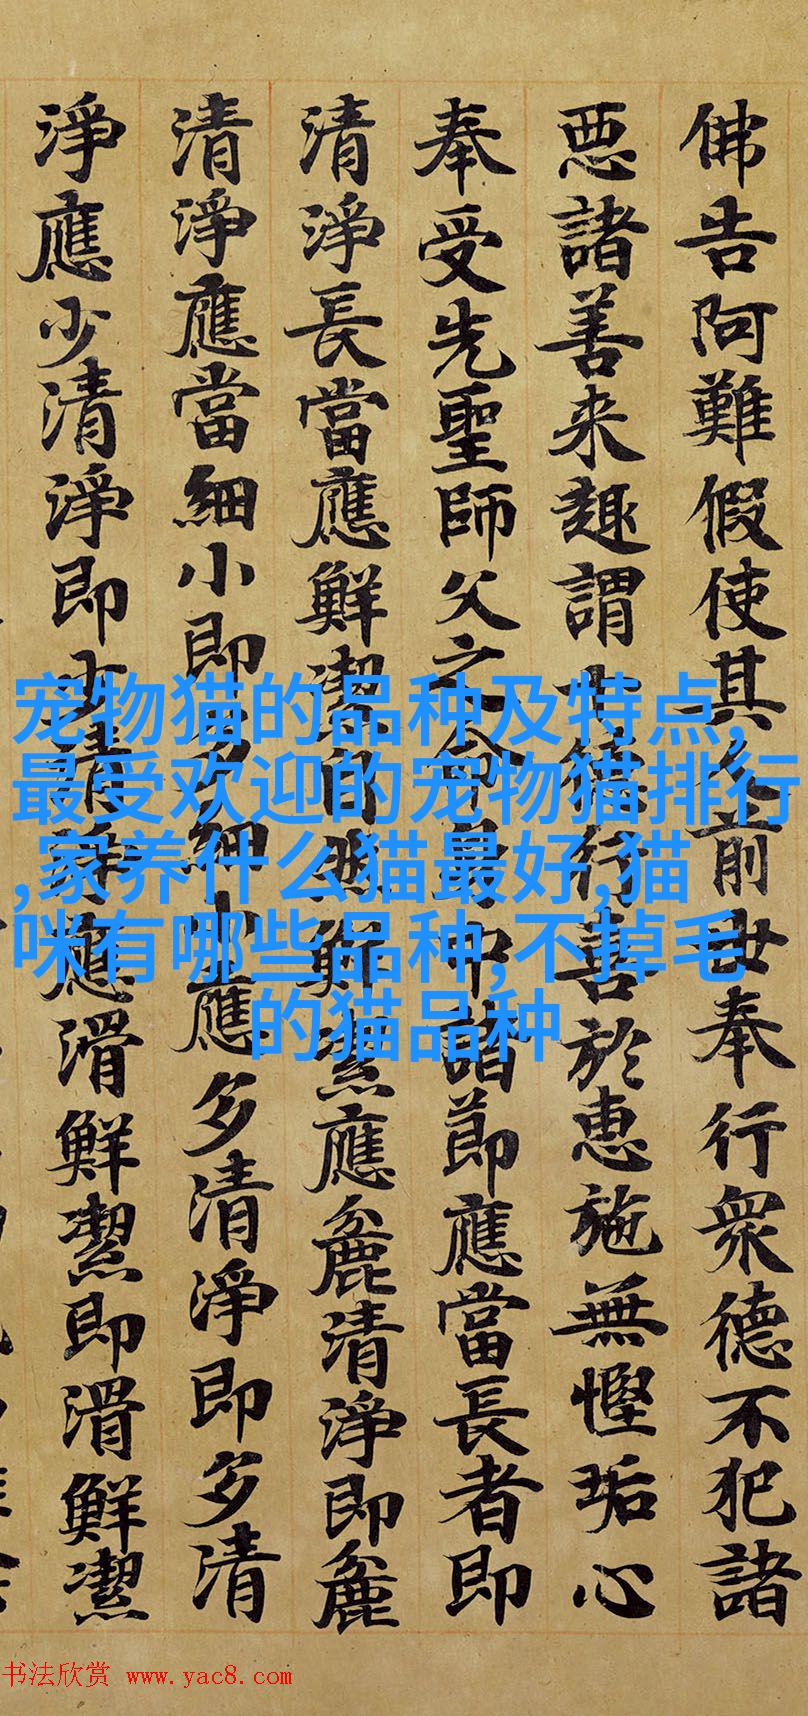 佛告阿難假使其人前世奉行衆德不犯諸
惡諸善来趣謂行善於惠施無慳垢心
奉受先聖師父之命最中諸節應當長者即
清淨長當應鮮潔鮮潔應麁清淨即麁
清淨應當細小即細小應多清淨即多清
淨應少清淨即少清淨應滑鮮潔即滑鮮潔
宠物猫的品种及特点,
最受欢迎的宠物猫排行
,家养什么猫最好,猫
咪有哪些品种,不掉毛
的猫品种
书法欣赏 www.yac8.com